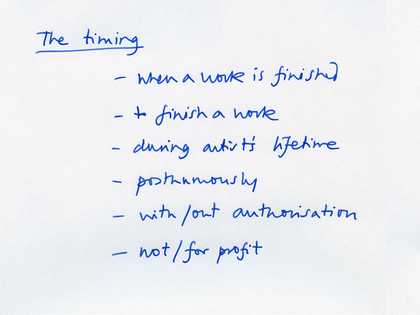 The timing
- when a work is finished
- to finish a work
- during artist's lifetime
- posthumously
- with/out authorisation
- not/for profit